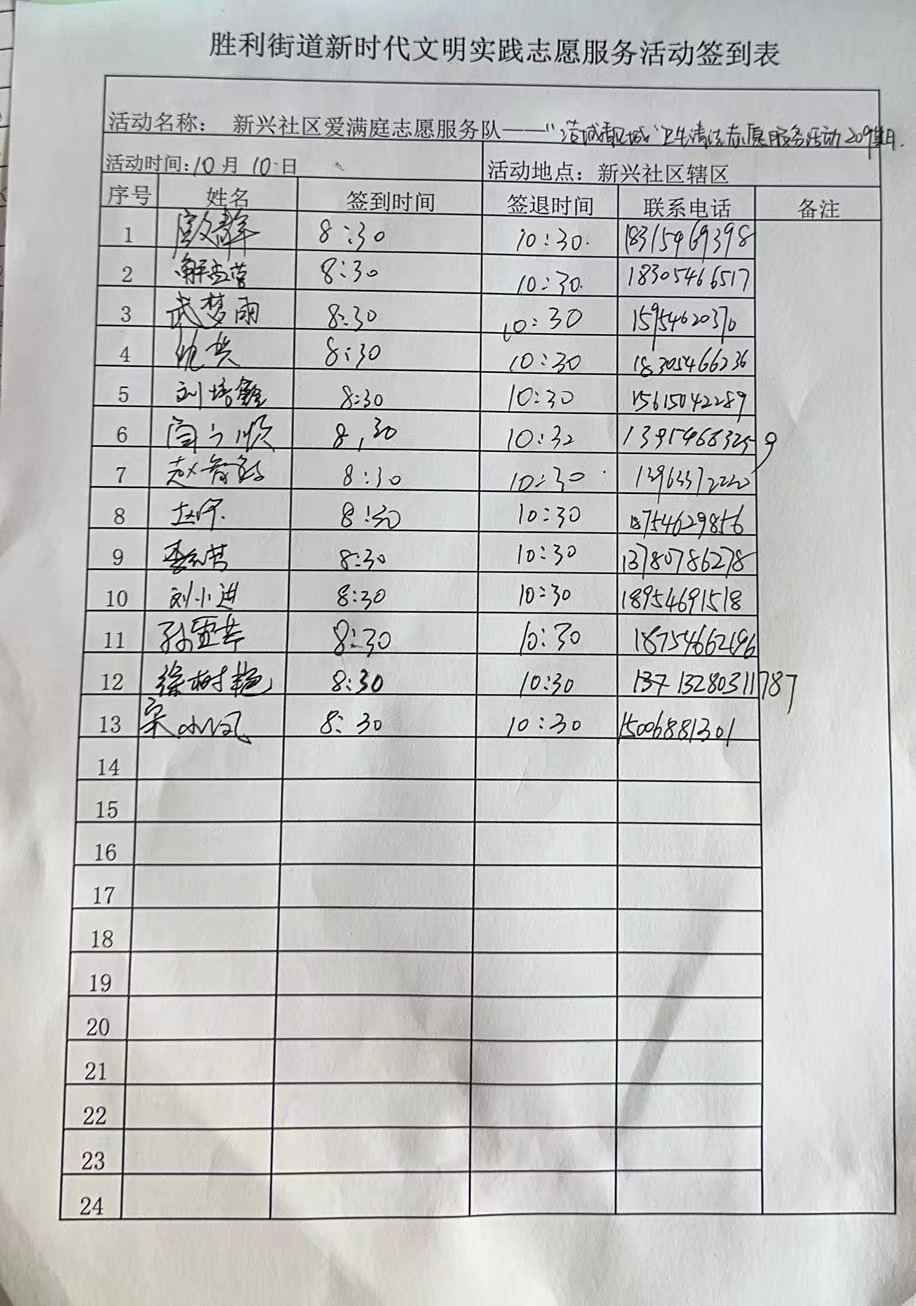 胜利街道新时代文明实践志愿服务活动签到表
活动名称： 新兴社区爱满庭志愿服务队——" 卫生清洁志愿服务活动209期
活动时间:10月10日 活动地点：新兴社区辖区
序号 姓名 签到时间 签退时间 联系电话 备注
1 8:30 10:30 18315469398
2 8:30 10:30 18305466517
3 武梦雨 8:30 10:30 15954620370
4 8:30 10:30 18305466236
5 刘培鑫 8:30 10:30 15615042289
6 8,30 10:32
7 8:30 10:30 13963372220
8 8:30 10:30 18754629856
9 8:30 10:30 13780786278
10 刘小进 8:30 10:30 18954691518
11 8:30 10:30 18754662696
12 徐树艳 8:30 10:30
13 宋小凤 8:30 10:30 15006881301
14
15
16
17
18
19
20
21
22
23
24